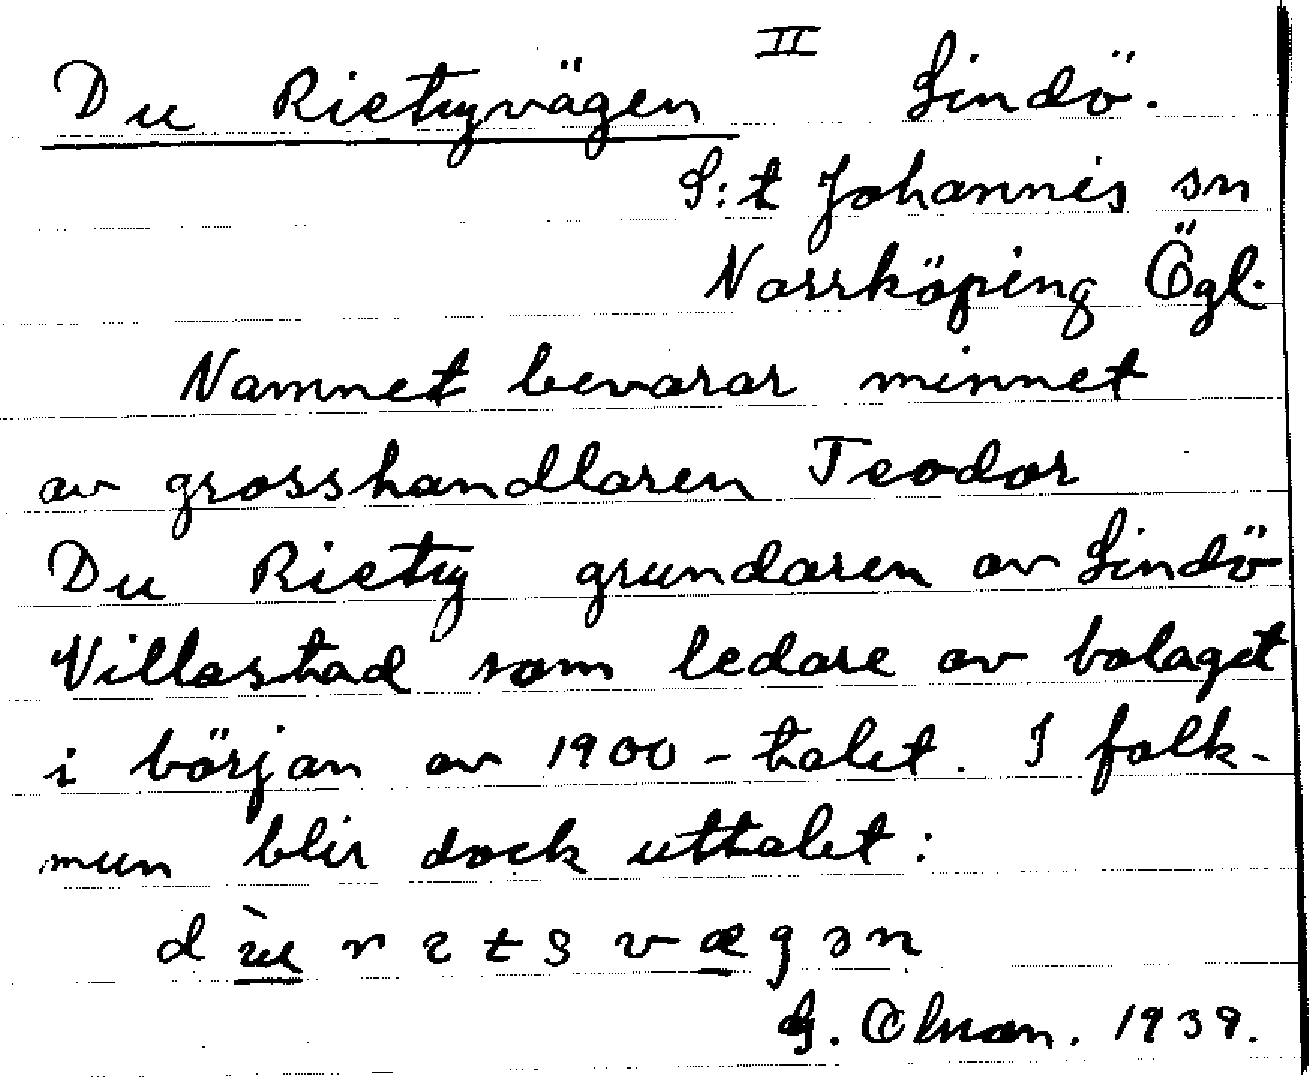 II
Du Rietzvägen Lindö.
S:t Johannis sn
Norrköping Ögl.
Namnet bevarar minnet
av grosshandlaren Teodor
Du Rietz grundaren av Lindö
Villastad som ledare av bolaget
i början av 1900-talet. I folk-
mun blir dock uttalet:
G. 1939.